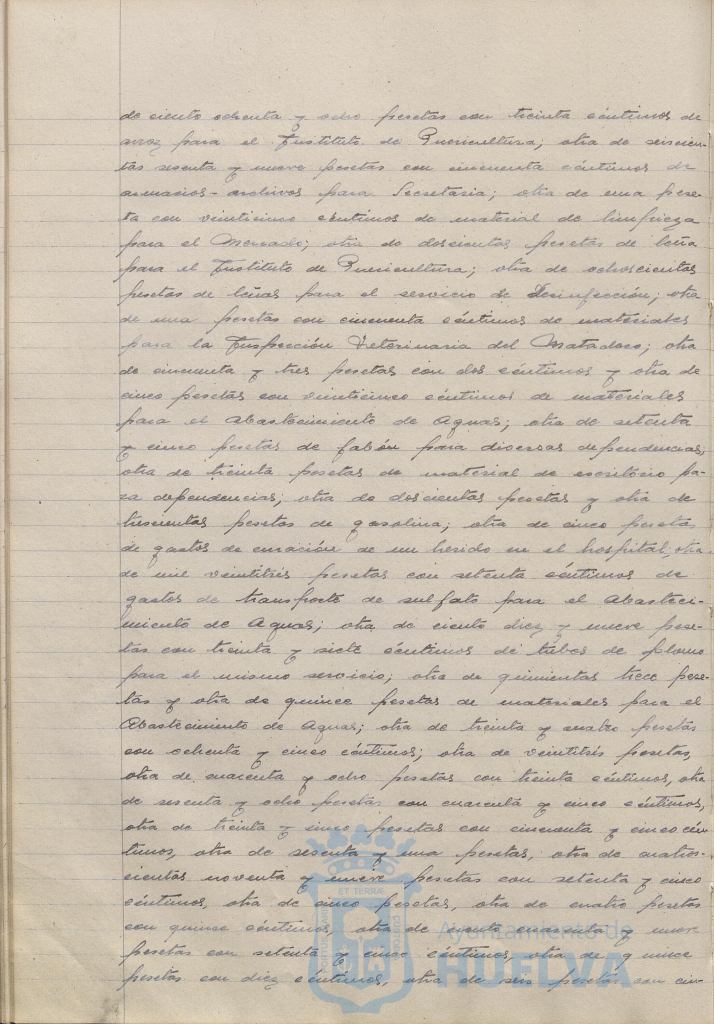 de ciento ochenta y ocho pesetas con treinta céntimos de
arroz para el Instituto de Puericultura; otra de seiscien-
tas sesenta y nueve pesetas con cincuenta céntimos de
armarios-archivos para Secretaria; otra de una pese-
ta con veinticinco céntimos de material de limpieza
para el Mercado; otra de doscientas pesetas de leña
para el Instituto de Puericultura; otra de ochocientas
pesetas de leñas para el servicio de Desinfección; otra
de una pesetas con cincuenta céntimos de materiales
para la Inspección Veterinaria del Matadero; otra
de cincuenta y tres pesetas con dos céntimos y otra de
cinco pesetas con veinticinco céntimos de materiales
para el abastecimiento de Aguas; otra de setenta
y cinco pesetas de jabón para diversas dependencias;
otra de treinta pesetas de material de escritorio pa-
ra dependencias; otra de doscientas pesetas y otra de
trescientas pesetas de gasolina; otra de cinco pesetas
de gastos de curación de un herido en el hospital; otra
de mil veintitrés pesetas con setenta céntimos de
gastos de transporte de sulfato para el Abasteci-
miento de Aguas; otra de ciento diez y nueve pese-
tas con treinta y siete céntimos de tubos de plomo
para el mismo servicio; otra de quinientas trece pese-
tas y otra de quince pesetas de materiales para el
Abastecimiento de Aguas; otra de treinta y cuatro pesetas
con ochenta y cinco céntimos; otra de veintitrés pesetas,
otra de cuarenta y ocho pesetas con treinta céntimos, otra
de sesenta y ocho pesetas con cuarenta y cinco céntimos,
otra de treinta y cinco pesetas con cincuenta y cinco cén-
timos, otra de sesenta y una pesetas, otra de cuatro-
cientas noventa y nueve pesetas con setenta y cinco
céntimos, otra de cinco pesetas, otra de cuatro pesetas
con quince céntimos, otra de ciento cuarenta y nueve
pesetas con setenta y cinco céntimos, otra de quince
pesetas con diez céntimos, otra de seis pesetas con cin-
ET TERRÆ
Ayuntamiento de
HUELVA